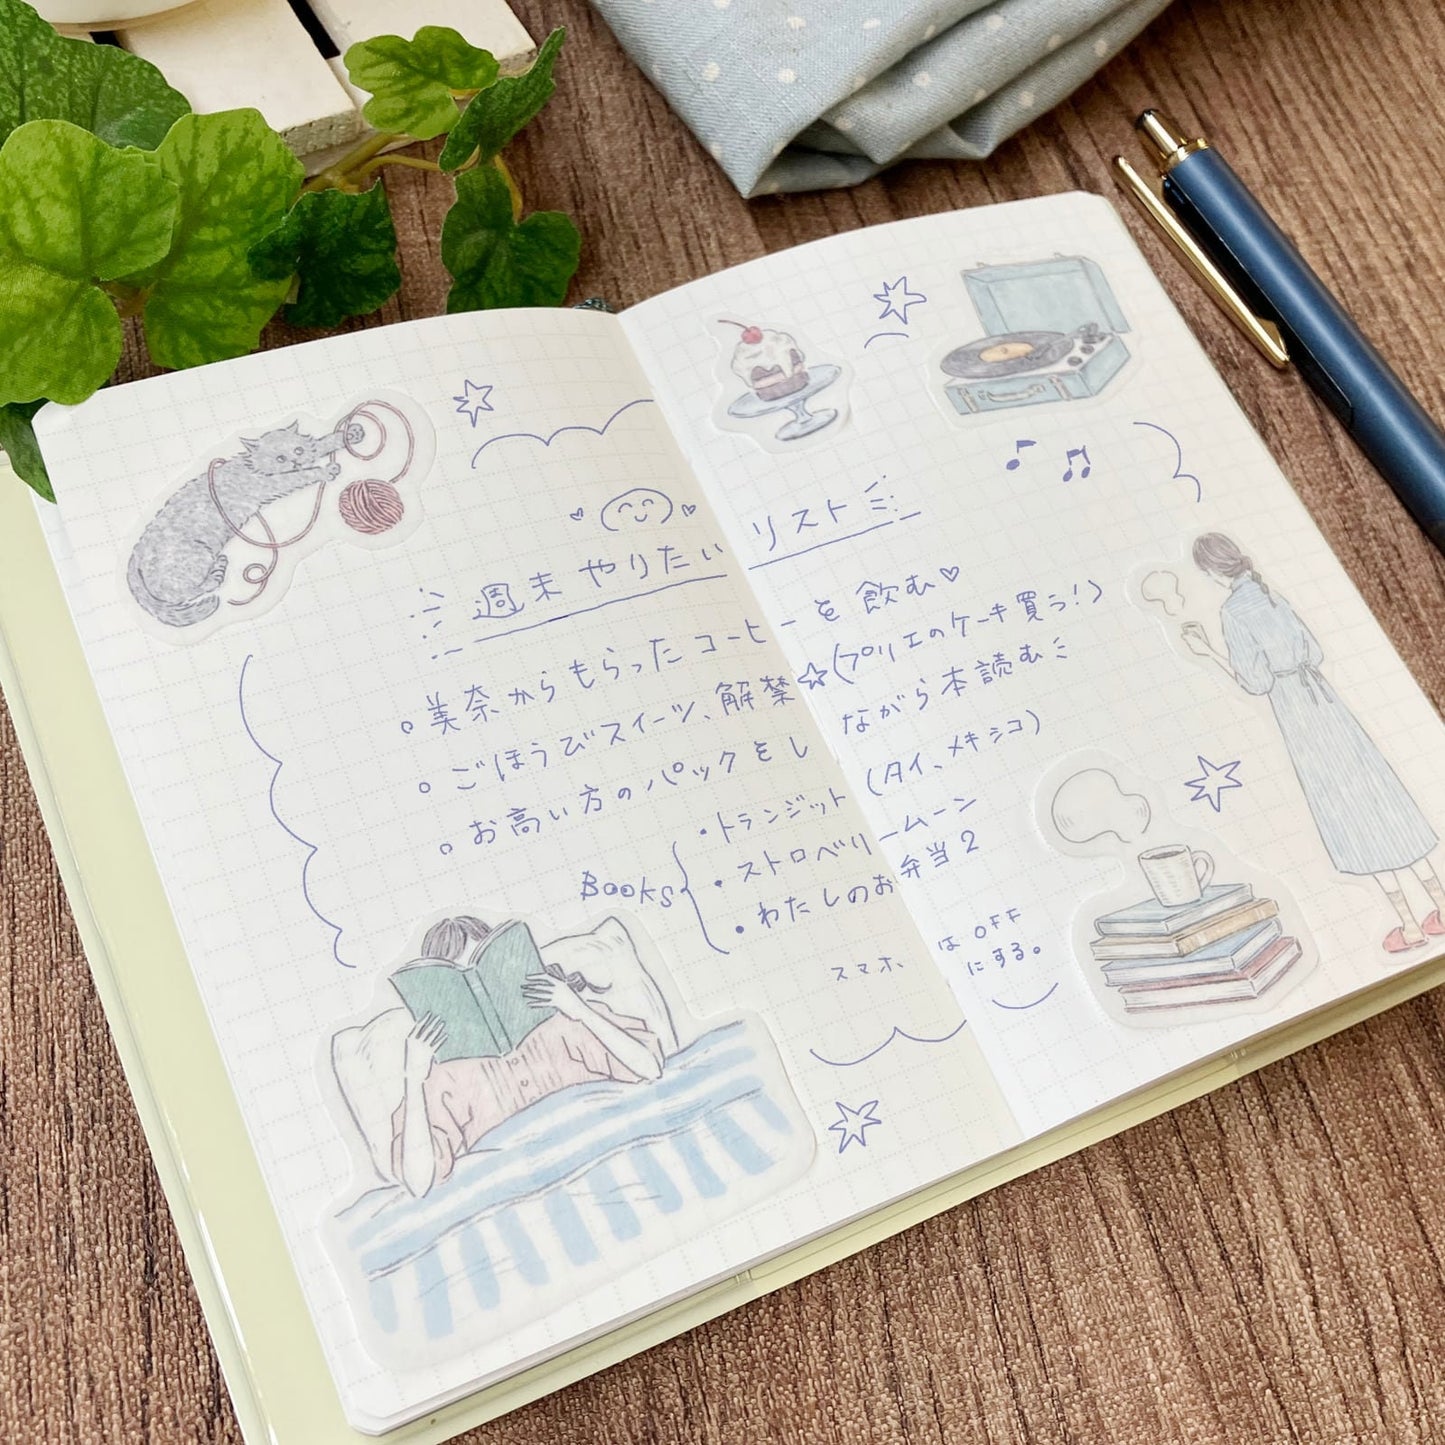 週末やりたいリスト
。美奈からもらったコーヒーを飲む♡
。ごほうびスイーツ、解禁☆(プリエのケーキ買う!)
。お高い方のパックをしながら本読む
Books
・トランジット(タイ、メキシコ)
・ストロベリームーン
・わたしのお弁当2
スマホはOFF
にする。